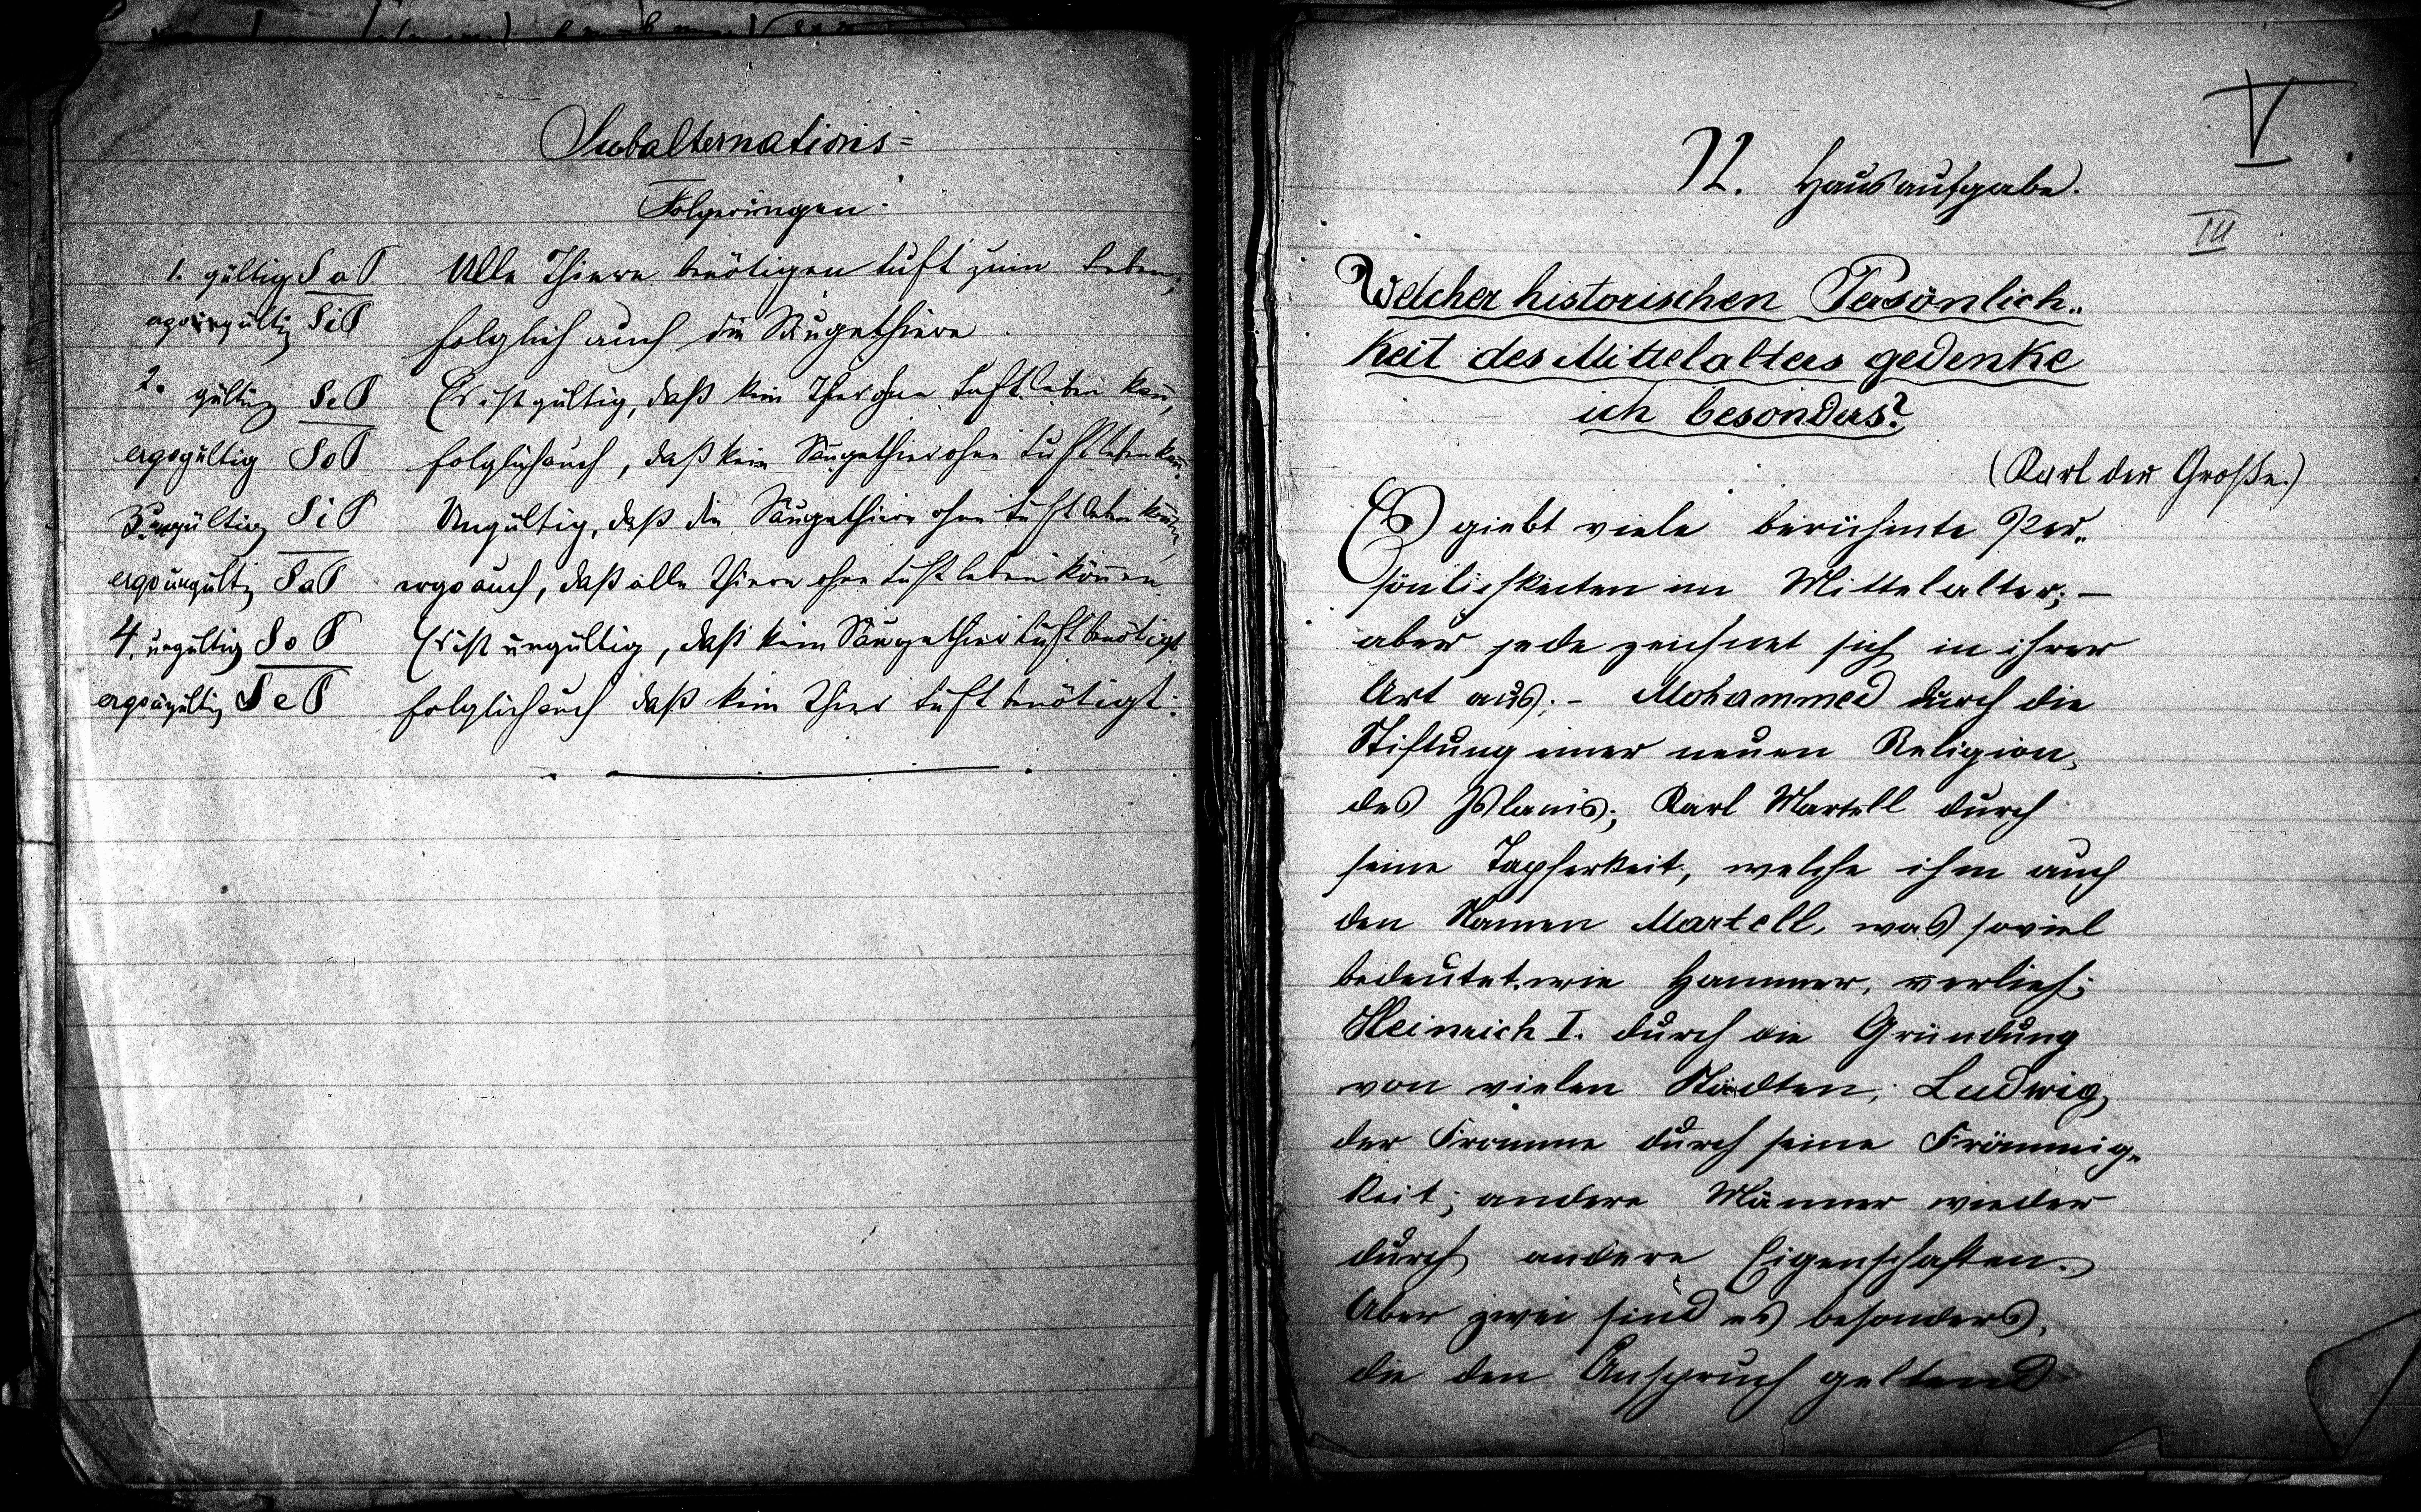 Subalternations=
Folgerungen.
1. gültig SaP. Alle Thiere benötigen Luft zum Leben;
ergo gültig SiP folglich auch die Säugethiere.
2. gültig SeP Es ist gültig, daß kein Thier ohne Luft leben kann,
ergo gültig SoP folglich auch, daß kein Säugethier ohne Luft leben kann.
3. ungültig SiP Ungültig, daß die Säugethiere ohne Luft leben können,
ergo ungültig SaP ergo auch, daß alle Thiere ohne Luft leben können.
4. ungültig SoP Es ist ungültig, daß kein Säugethier Luft benötigt
ergo ungültig SeP folglich auch daß kein Thier Luft benötigt.
V
II. Hausaufgabe.
III
Welcher historischen Persönlich„
keit des Mittelalters gedenke
ich besonders?
(Karl der Große.)
Es giebt viele berühmte Per„
sönlichkeiten im Mittelalter; –
aber jede zeichnet sich in ihrer
Art aus; – Mohammed durch die
Stiftung einer neuen Religion,
des Islams; Karl Martell durch
seine Tapferkeit, welche ihm auch
den Namen Martell, was soviel
bedeutet wie Hammer, verlieh;
Heinrich I. durch die Gründung
von vielen Städten; Ludwig
der Fromme durch seine Frömmig„
keit; andere Männer wieder
durch andere Eigenschaften.
Aber zwei sind es besonders,
die den Anspruch geltend